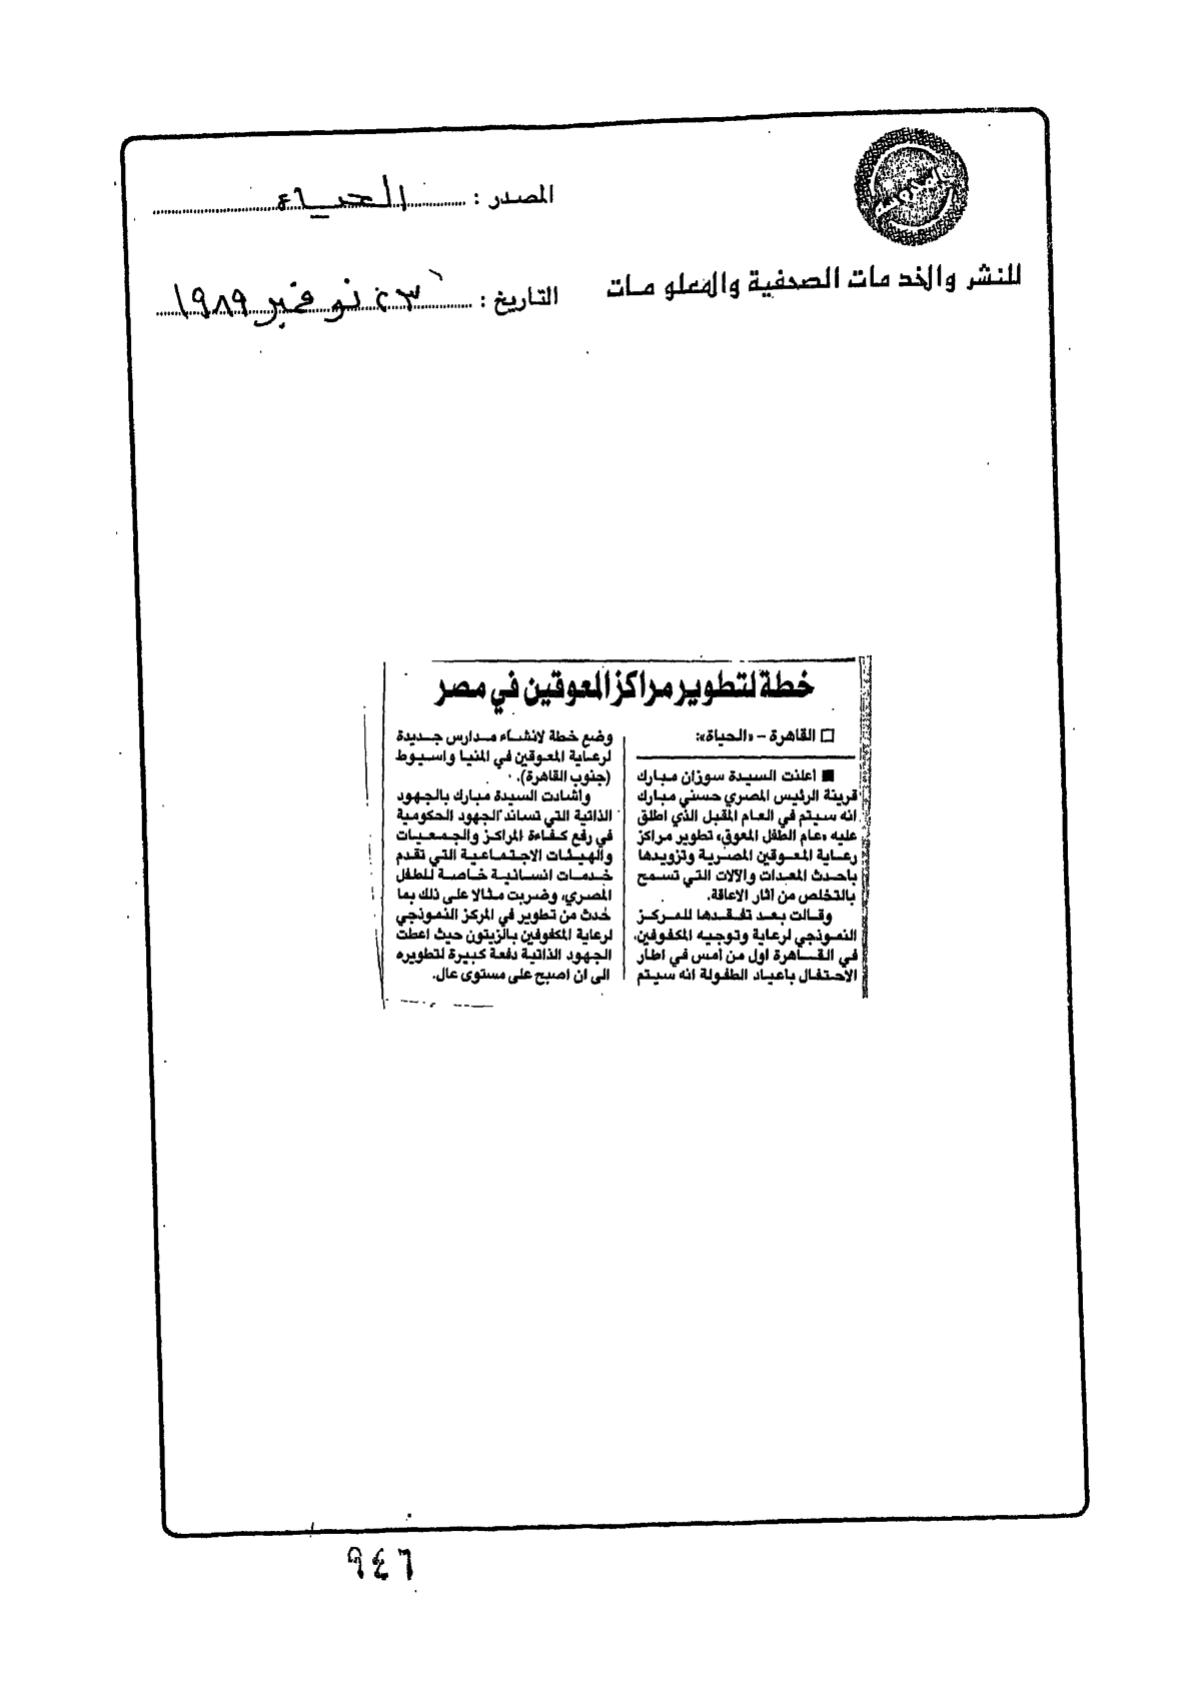 المصدر : الحياة
للنشر والخدمات الصحفية والمعلومات
التاريخ : ٢٣ نوفمبر ١٩٨٩
خطة لتطوير مراكز المعوقين في مصر
□ القاهرة – «الحياة»:
■ اعلنت السيدة سوزان مبارك
قرينة الرئيس المصري حسني مبارك
انه سيتم في العام المقبل الذي اطلق
عليه «عام الطفل المعوق» تطوير مراكز
رعاية المعوقين المصرية وتزويدها
باحدث المعدات والآلات التي تسمح
بالتخلص من آثار الاعاقة.
وقالت بعد تفقدها للمركز
النموذجي لرعاية وتوجيه المكفوفين،
في القاهرة اول من امس في اطار
الاحتفال باعياد الطفولة انه سيتم
وضع خطة لانشاء مدارس جديدة
لرعاية المعوقين في المنيا واسيوط
(جنوب القاهرة).
واشادت السيدة مبارك بالجهود
الذاتية التي تساند الجهود الحكومية
في رفع كفاءة المراكز والجمعيات
والهيئات الاجتماعية التي تقدم
خدمات انسانية خاصة للطفل
المصري، وضربت مثالا على ذلك بما
حدث من تطوير في المركز النموذجي
لرعاية المكفوفين بالزيتون حيث اعطت
الجهود الذاتية دفعة كبيرة لتطويره
الى ان اصبح على مستوى عال.
٩٤٦